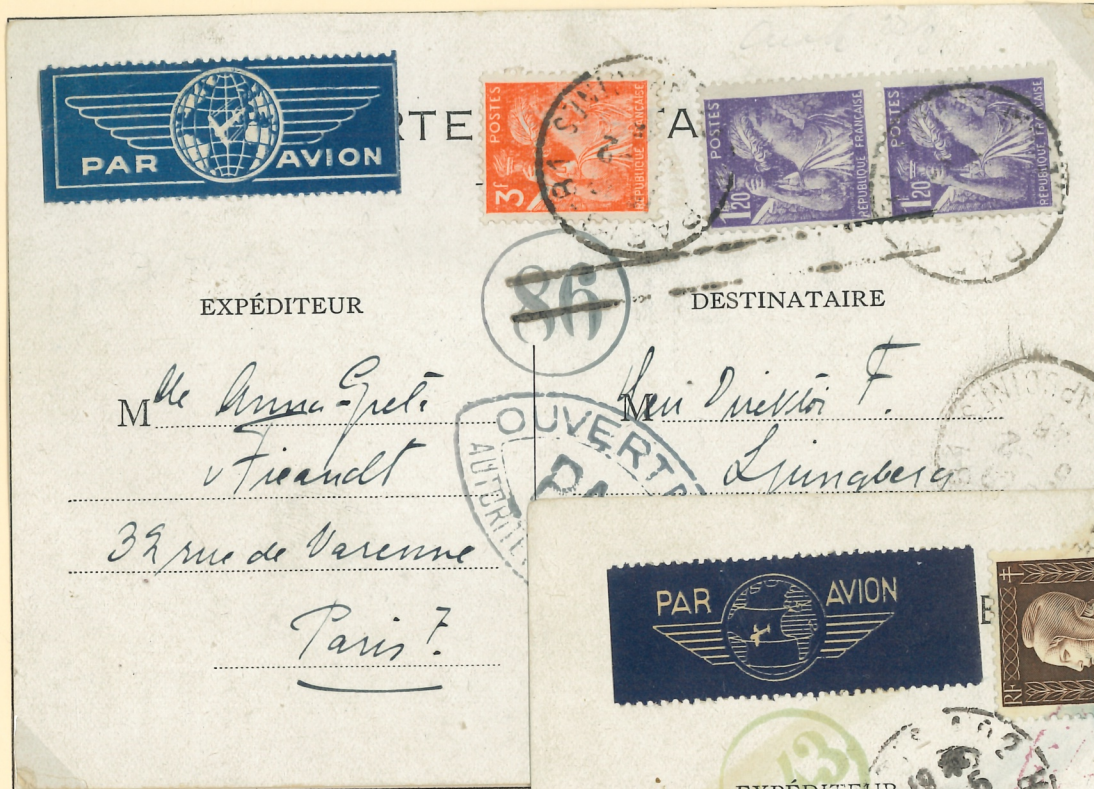 PAR AVION
RTE
TA
POSTES
3F
RÉPUBLIQUE FRANÇAISE
POSTES
1F20
RÉPUBLIQUE FRANÇAISE
POSTES
1F20
RÉPUBLIQUE FRANÇAISE
86
EXPÉDITEUR
DESTINATAIRE
Mlle Anna-Greta
v Fieandt
32 rue de Varenne
Paris 7.
M Herr Direktör F.
Ljungberg
OUVERT
PA
AUTORITÉ
PAR AVION
RF
EXPÉDITEUR